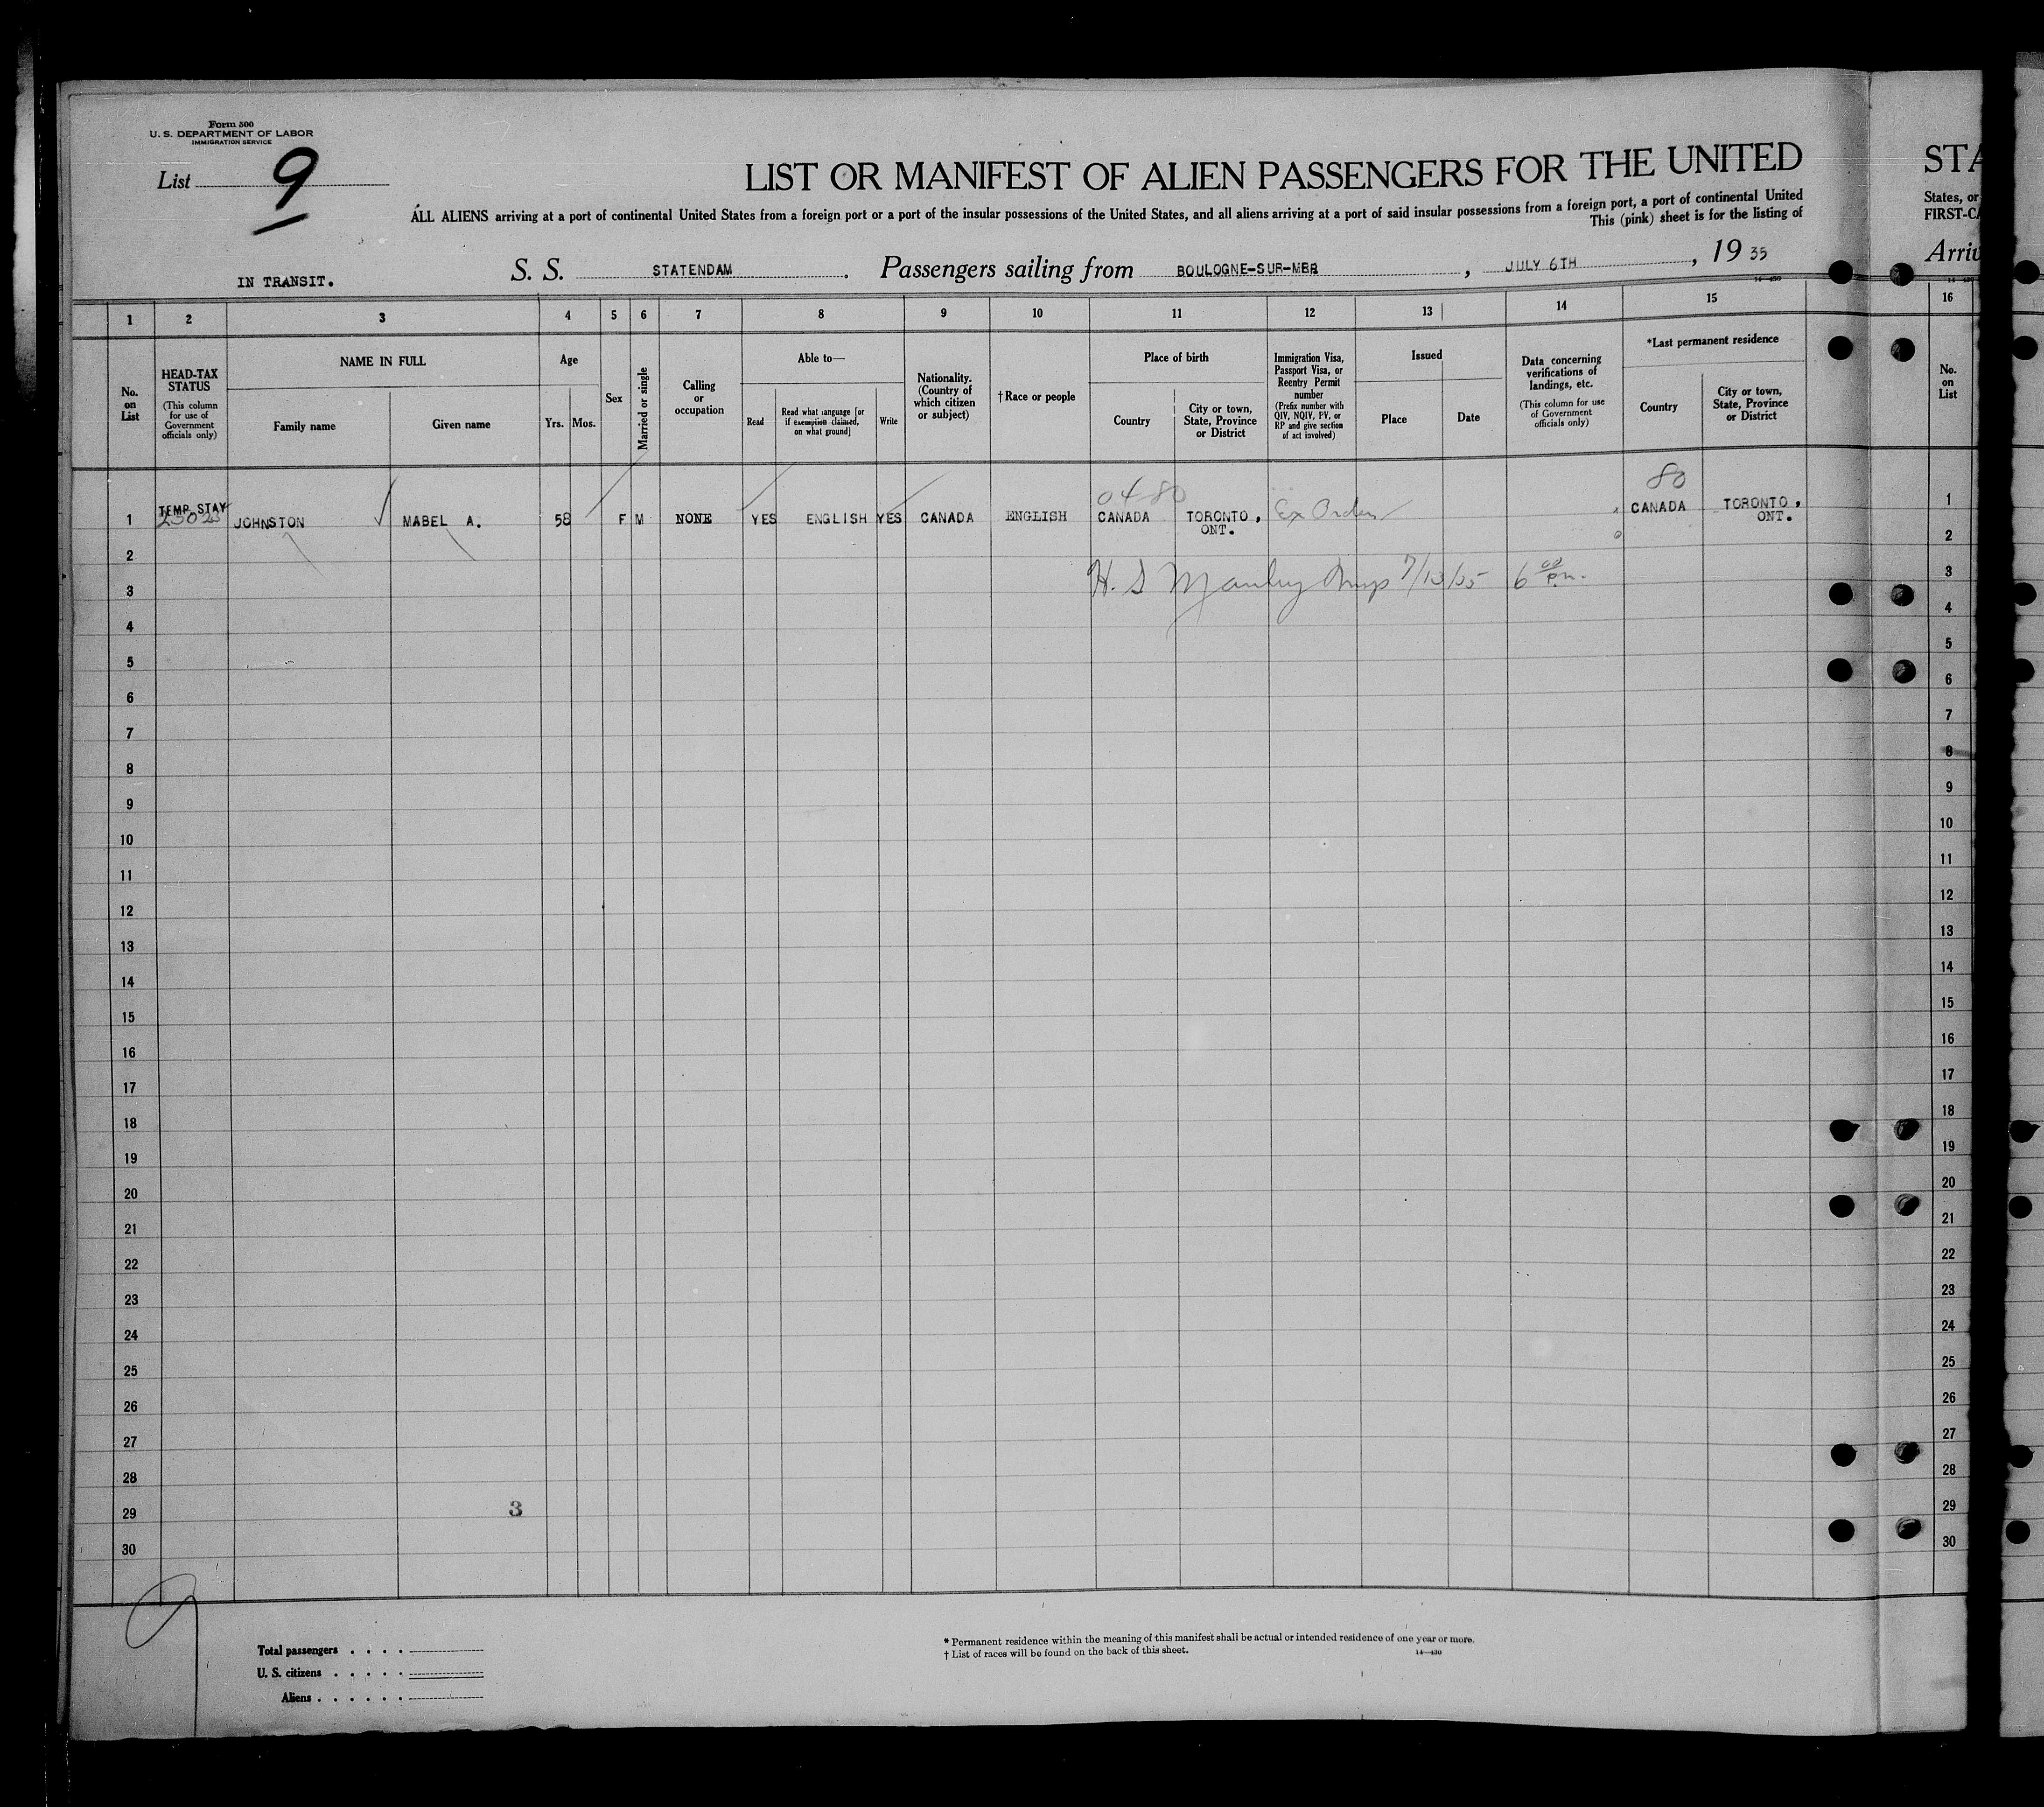 Form 500
U. S. DEPARTMENT OF LABOR
IMMIGRATION SERVICE
List 9
LIST OR MANIFEST OF ALIEN PASSENGERS FOR THE UNITED
ALL ALIENS arriving at a port of continental United States from a foreign port or a port of the insular possessions of the United States, and all aliens arriving at a port of said insular possessions from a foreign port, a port of continental United
This (pink) sheet is for the listing of
IN TRANSIT. S. S. STATENDAM. Passengers sailing from BOULOGNE-SUR-MER, JULY 6TH, 1935
STA
States, or
FIRST-CA
Arriv
14—430
1 2 3 4 5 6 7 8 9 10 11 12 13 14 15 16
No. on List
HEAD-TAX STATUS
(This column for use of Government officials only)
NAME IN FULL
Family name
Given name
Age
Yrs. Mos.
Sex
Married or single
Calling or occupation
Able to—
Read
Read what language [or if exemption claimed, on what ground]
Write
Nationality. (Country of which citizen or subject)
†Race or people
Place of birth
Country
City or town, State, Province or District
Immigration Visa, Passport Visa, or Reentry Permit number
(Prefix number with QIV, NQIV, PV, or RP and give section of act involved)
Issued
Place
Date
Data concerning verifications of landings, etc.
(This column for use of Government officials only)
*Last permanent residence
Country
City or town, State, Province or District
No. on List
04-80
80
1 TEMP. STAY JOHNSTON MABEL A. 58 F M NONE YES ENGLISH YES CANADA ENGLISH CANADA TORONTO, ONT. Ex Order CANADA TORONTO, ONT. 1
2 2
H. S 7/13/35 6 00 P.m.
3 3
4 4
5 5
6 6
7 7
8 8
9 9
10 10
11 11
12 12
13 13
14 14
15 15
16 16
17 17
18 18
19 19
20 20
21 21
22 22
23 23
24 24
25 25
26 26
27 27
28 28
29 29
3
30 30
9
Total passengers . . . .
U. S. citizens . . . . .
Aliens . . . . . .
* Permanent residence within the meaning of this manifest shall be actual or intended residence of one year or more.
† List of races will be found on the back of this sheet.
14—430